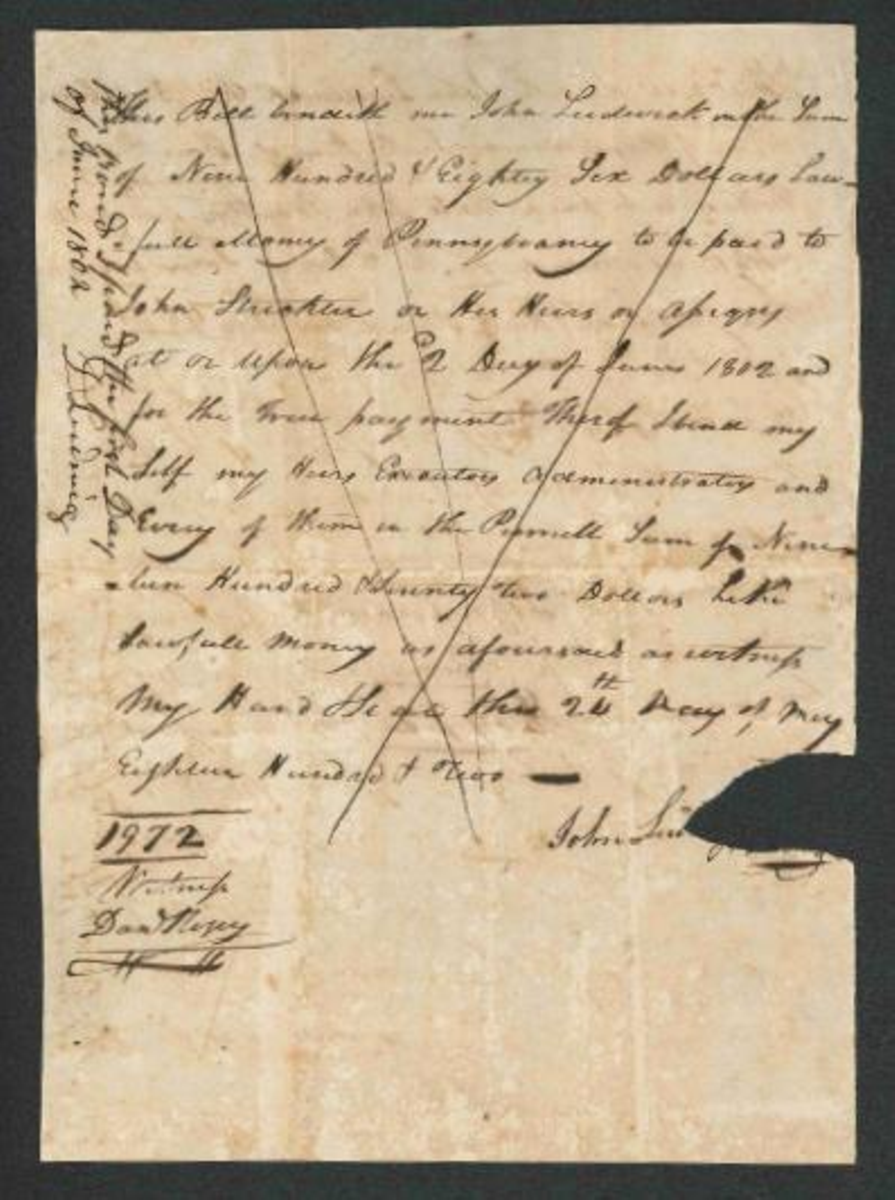 This Bill bindith me John Ludwick in the Sum
of Nine Hundred & Eighty Six Dollars Law-
full Money of Pennsylvaney to be paid to
John Strickler or His Heirs or assigns
at or upon the 2 Day of June 1802 and
for the True payment Therof I bind my
Self my Heirs Executors administrators and
Every of them in the Pennell Sum of Nine-
teen Hundred & Seventy two Dollors Like
Lawfull Money as afoursaid as witness
My Hand & Seal this 24th Day of May
Eighteen Hundred & Two —
John Lud
1972
Witness
Danl
This Bond is paid the first Day
of June 1802
J Ludwig